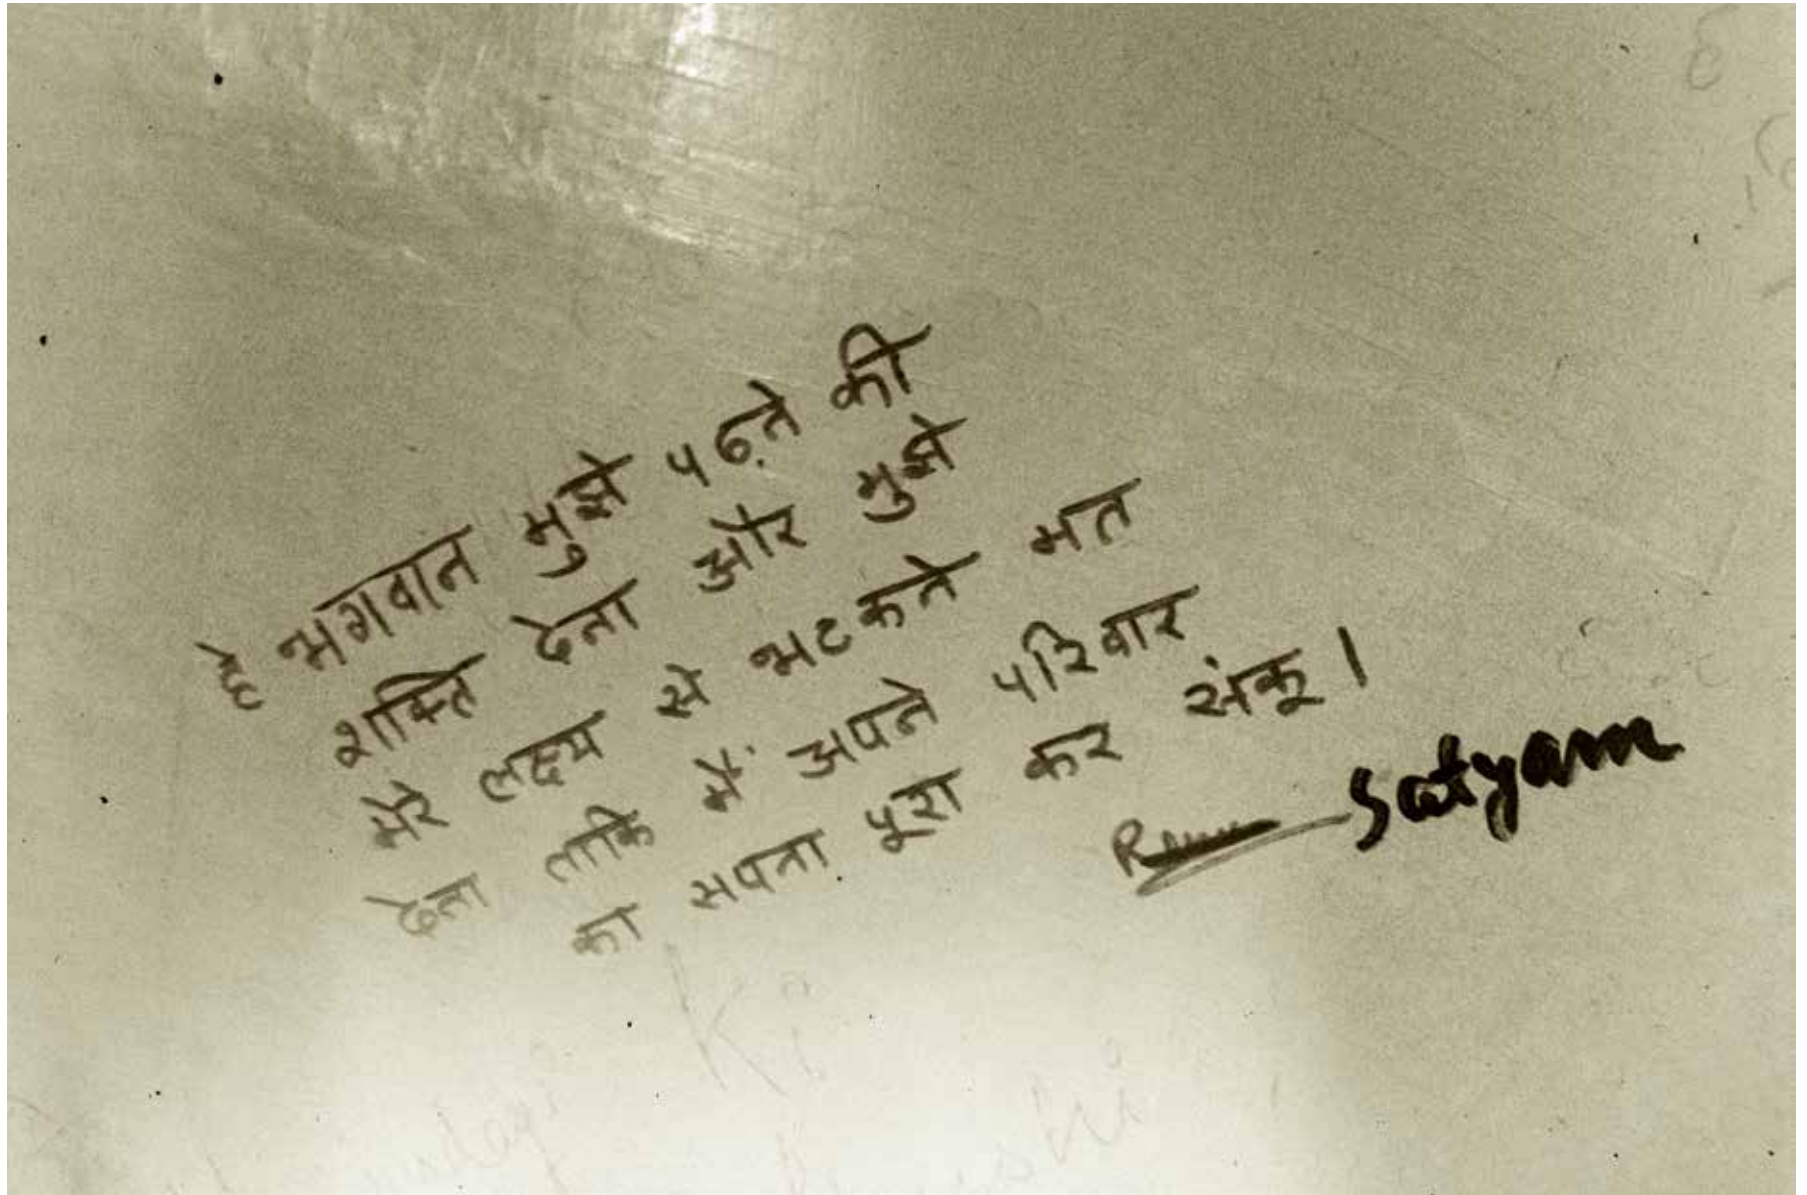 हे भगवान मुझे पढ़ने की
शक्ति देना और मुझे
मेरे लक्ष्य से भटकने मत
देना ताकि मैं अपने परिवार
का सपना पूरा कर संकू ।
Satyam
Ki